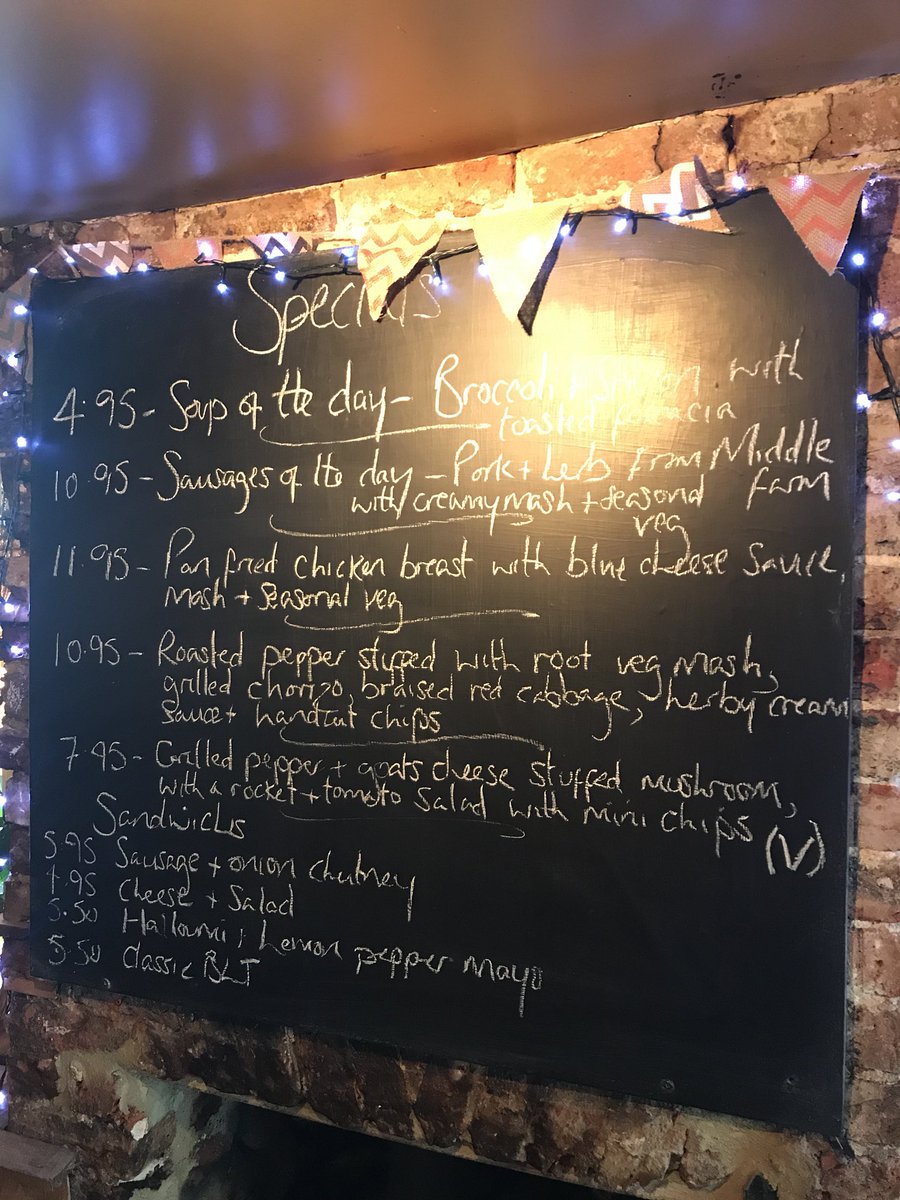 Specials
4.95 - Soup of the day - Broccoli + Stilton with
toasted focaccia
10.95 - Sausages of the day - Pork + herb from Middle
farm
with creamy mash + seasonal
veg
11.95 - Pan fried chicken breast with blue cheese sauce,
mash + seasonal veg
10.95 - Roasted pepper stuffed with root veg mash,
grilled chorizo, braised red cabbage, herby cream
sauce + handcut chips
7.95 - Grilled pepper + goats cheese stuffed mushroom,
with a rocket + tomato salad with mini chips
(V)
Sandwichs
5.95 Sausage + onion chutney
4.95 Cheese + Salad
5.50 Halloumi + Lemon pepper mayo
5.50 Classic BLT